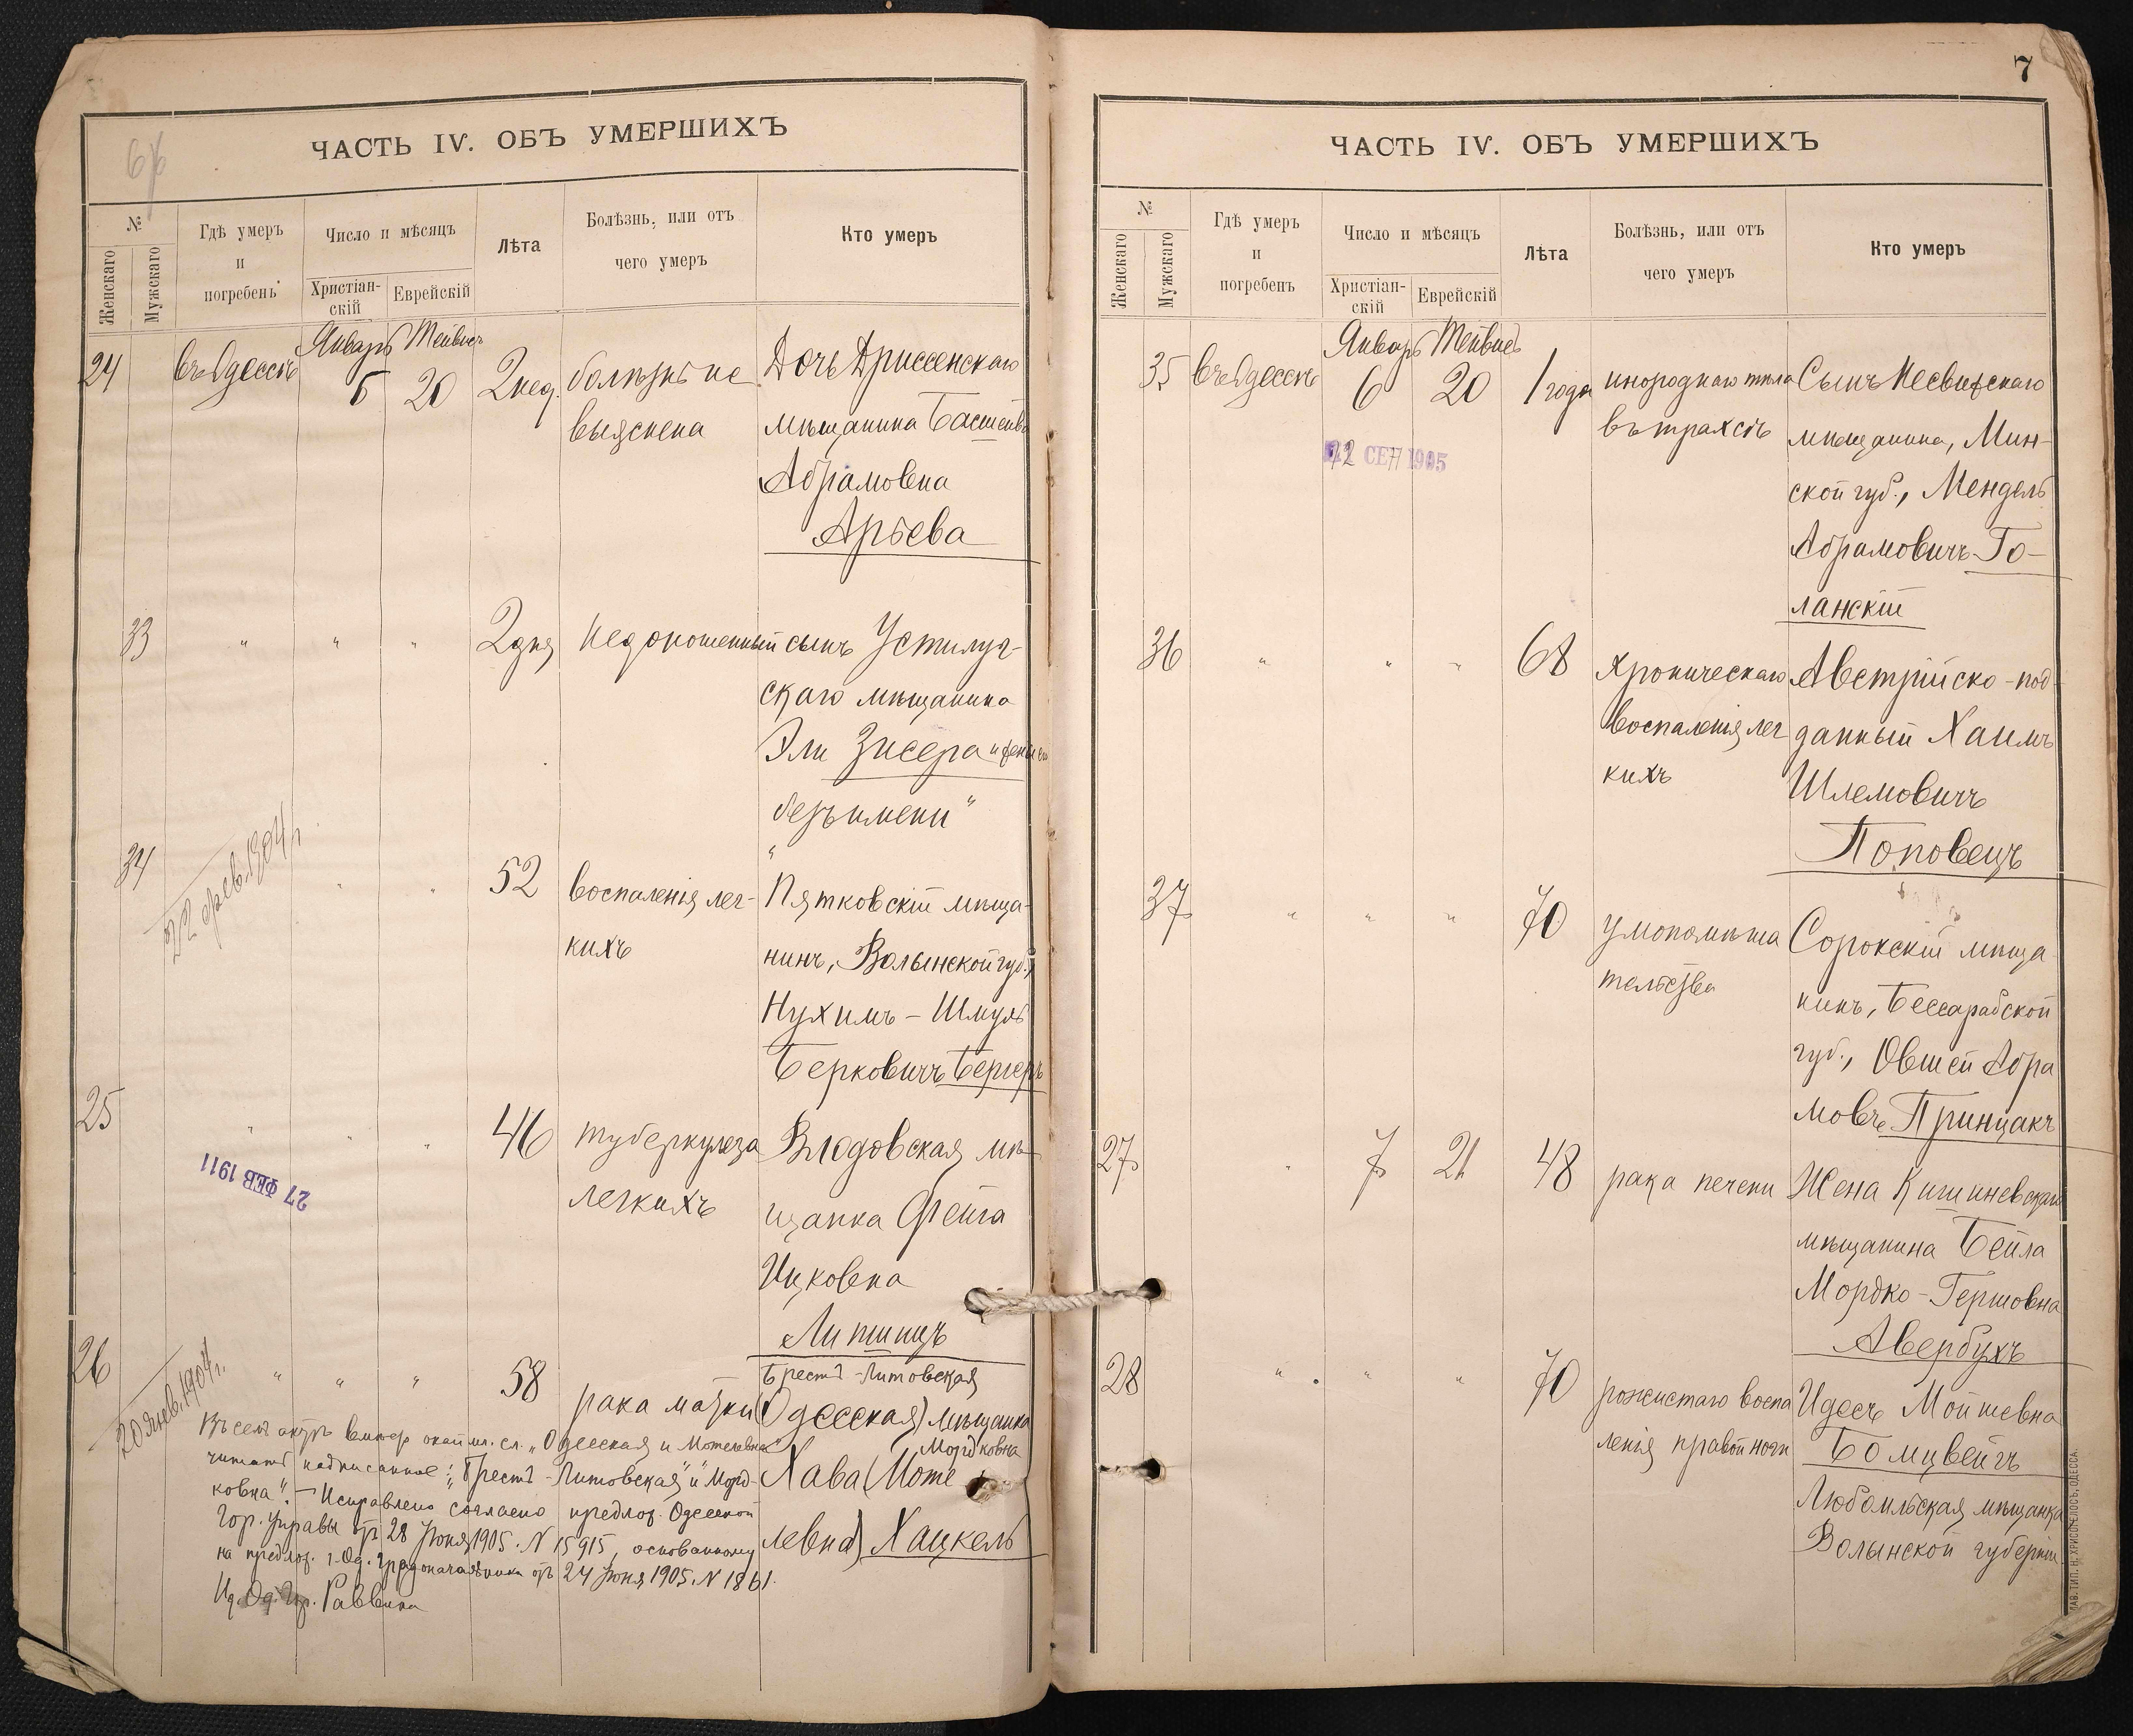 6
ЧАСТЬ IV. ОБЪ УМЕРШИХЪ
№
Женскаго
Мужскаго
Гдѣ умеръ
и
погребенъ
Число и мѣсяцъ
Христіан-
скій
Еврейскій
Лѣта
Болѣзнь, или отъ
чего умеръ
Кто умеръ
24
въ Одессѣ
Январь
Тейвисъ
6
20
2 нед.
болѣзнь не
выяснена
Дочь Дриссенскаго
мѣщанина Басшейва
Абрамовна
Арьева
33
"
"
"
2 дня
Недоношенный
сынъ Устилуг-
скаго мѣщанина
Эли Зисера
безъ имени"
34
22 фев. 1904 г.
"
"
52
воспаленія лег-
кихъ
Пятковскій мѣща-
нинъ, Волынской губ.,
Нухимъ-Шмуль
Берковичъ Бергеръ
25
"
"
"
27 ФЕВ 1911
46
туберкулеза
легкихъ
Влодовская мѣ-
щанка Фейга
Ицковна
Липшицъ
26
20 янв. 1904 г.
"
"
"
58
рака матки
Брестъ-Литовская
(Одесская) мѣщанка
Мордковна
Хава (Моте-
левна) Хацкель
Въ семъ актѣ вмѣсто окаймл. сл. „Одесская и Мотелевна"
читать надписанное: „Брестъ-Литовская" и „Морд-
ковна". – Исправлено согласно предлож. Одесской
Гор. Управы отъ 28 Іюня 1905. N 15915, основанному
на предлож. г. Од. Градоначальника отъ 24 Іюня 1905. N 1861.
Од. Гор. Раввина
7
ЧАСТЬ IV. ОБЪ УМЕРШИХЪ
№
Женскаго
Мужскаго
Гдѣ умеръ
и
погребенъ
Число и мѣсяцъ
Христіан-
скій
Еврейскій
Лѣта
Болѣзнь, или отъ
чего умеръ
Кто умеръ
35
въ Одессѣ
Январь
Тейвисъ
6
20
22 СЕП 1905
1 года
инороднаго тѣла
въ трахеѣ
Сынъ Несвижскаго
мѣщанина, Мин-
ской губ., Мендель
Абрамовичъ Го-
ланскій
36
"
"
"
68
хроническаго
воспаленія лег
кихъ
Австрійско-под-
данный Хаимъ
Шлемовичъ
Поповецъ
37
"
"
"
70
умопомѣша
тельства
Сорокскій мѣща
нинъ, Бессарабской
губ., Овшей Абра
мовъ Принцакъ
27
"
7
21
48
рака печени
Жена Кишиневскаго
мѣщанина Бейла
Мордко-Гершовна
Авербухъ
28
"
"
"
70
рожистаго воспа
ленія правой ноги
Идесъ Мойшевна
Бомцвейгъ
Любомльская мѣщанка
Волынской губерніи
СЛАВ. ТИП. Н. ХРИСОГЕЛОСЪ, ОДЕССА.